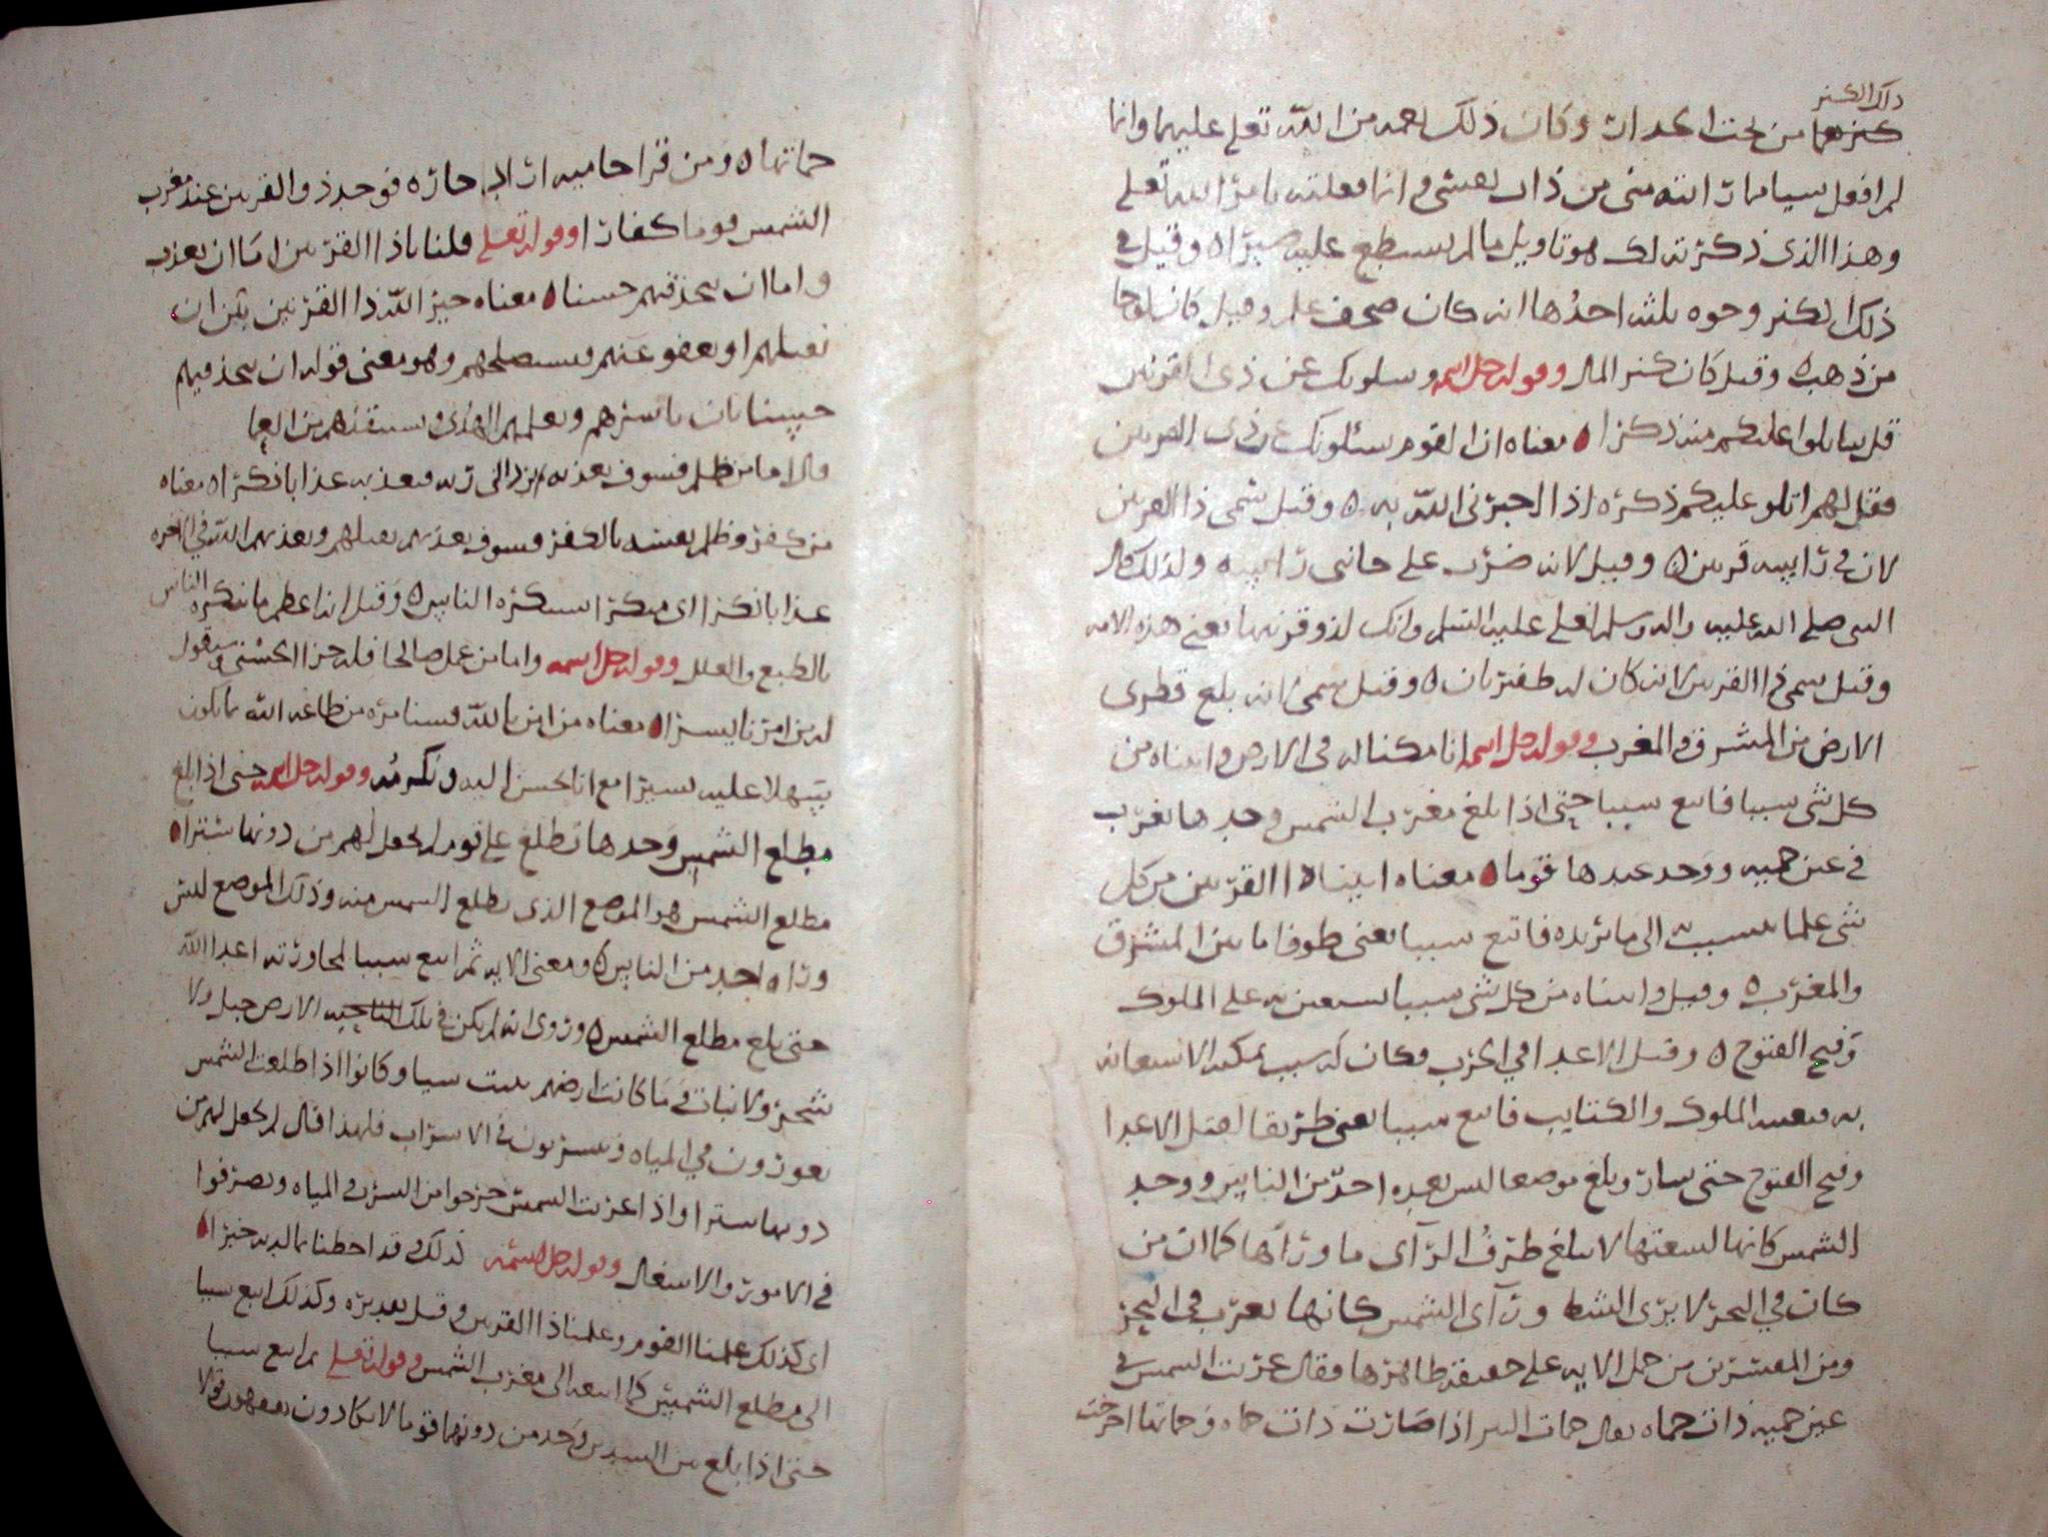 ذلك الكنز
كنزهما من تحت الجدار وكان ذلك نعمه من الله تعلى عليهما وانما
لم افعل سيا مما راىته منى من ذات نفسى وانما فعلته بامر الله تعلى
وهذا الذى ذكرته لك هو تاويل ما لم تسطع عليه صبرا ٥ وقيل فى
ذلك الكنز وجوه ثلثه احدها انه كان صحف علم وقيل كان لوحا
من ذهب ٥ وقيل كان كنز المال وقوله جل اسمه ويسلونك عن ذى القرنين
قل ساتلوا عليكم منه ذكرا ٥ معناه ان القوم يسئلونك عن ذى القرنين
فقل لهم اتلو عليكم ذكره اذا اخبرنى الله به ٥ وقيل سمى ذا القرنين
لان فى راسه قرنين ٥ وقيل لانه ضرب على جانبى راسه ولذلك قال
النبى صلى الله عليه واله وسلم لعلى عليه السلم وانك لذو قرنيها يعنى هذه الامه
وقيل سمى ذا القرنين لانه كان له ظفيرتان ٥ وقيل سمى لانه بلغ قطرى
الارض من المشرق والمغرب وقوله جل اسمه انا مكنا له فى الارض واتيناه من
كل شى سببا فاتبع سببا حتى اذا بلغ مغرب الشمس وجدها تغرب
فى عين حميه ووجد عندها قوما ٥ معناه اتينا ذا القرنين من كل
شى علما يتسبب به الى ما يريده فاتبع سببا يعنى طرقا ما بين المشرق
والمغرب ٥ وقيل واتيناه من كل شى سببا يستعين به على الملوك
وفتح الفتوح ٥ وقتل الاعدا فى الحرب فكان له سبب يمكنه الاستعانه
به الملوك والكتايب فاتبع سببا يعنى طريقا لقتل الاعدا
وفتح الفتوح حتى سار وبلغ موضعا ليس بعده احد من الناس ووجد
الشمس كانها لسعتها لا يبلغ طرف الرآى ما ورآها كما ان من
كان فى البحر لا يرى الشط ورآى الشمس كانها تغرب فى البحر
ومن المفسرين من حمل الايه على حقيقه ظاهرها فقال غربت الشمس فى
عين حميه ذات حماه يقال حمات البير اذا صارت ذات حماه وحماتها اخرجت
حماتها ٥ ومن قرا حاميه اراد حاره فوجد ذو القرنين عند مغرب
الشمس قوما كفارا وقوله تعلى قلنا ياذا القرنين اما ان تعذب
واما ان تتخذ فيهم حسنا ٥ معناه خير الله ذا القرنين بين ان
يقتلهم او يعفو عنهم ويستصلحهم وهو معنى قوله ان تتخذ فيهم
حسنا بان ياسرهم ويعلمهم الهدى ويستنقذهم من العما
قال اما من ظلم فسوف نعذبه ثم يرد الى ربه فيعذبه عذابا نكرا ٥ معناه
من كفر وظلم نفسه بالكفر فسوف نعذبهم بقتلهم ويعذبهم الله فى الاخره
عذابا نكرا اى منكرا يستنكره الناس ٥ وقيل انه اعظم ما ينكره الناس
بالطبع والعقل وقوله جل اسمه واما من عمل صالحا فله جزا الحسنى وسنقول
له من امرنا يسرا ٥ معناه من امن بالله فسنامره من طاعه الله بما يكون
سهلا عليه يسيرا مع انا نحسن اليه ونكرمه وقوله جل اسمه حتى اذا بلغ
مطلع الشمس وجدها تطلع على قوم لم نجعل لهم من دونها سترا ٥
مطلع الشمس هو الموضع الذى تطلع الشمس منه وذلك الموضع ليس
وراه احد من الناس ٥ ومعنى الايه ثم اتبع سببا لمحاربته اعدا الله
حتى بلغ مطلع الشمس ٥ وروى انه لم يكن فى تلك الناحيه الارض جبل ولا
شجر ولا نبات وما كانت ارضهم تنبت سيا وكانوا اذا طلعت الشمس
يغورون فى المياه ويتسربون فى الاسراب فلهذا قال لم نجعل لهم من
دونها سترا واذا غربت الشمس خرجوا من السرب والمياه وتصرفوا
فى الامور والاشغال وقوله جل اسمه كذلك وقد احطنا بما لديه خبرا ٥
اى كذلك علمنا القوم وعلمنا ذا القرنين وقيل تقديره وكذلك اتبع سببا
الى مطلع الشمس كما اتبعه الى مغرب الشمس وقوله تعلى ثم اتبع سببا
حتى اذا بلغ بين السدين وجد من دونهما قوما لا يكادون يفقهون قولا